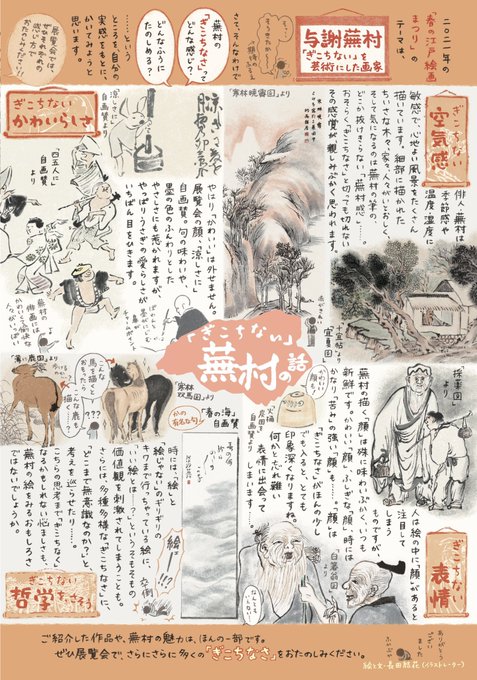 二〇二一年の
「春の江戸絵画
まつり」の
テーマは、
与謝蕪村
「ぎこちない」を
芸術にした画家
さて、そんなわけで
蕪村の
「ぎこちなさ」って
どんな感じ？
どんなふうに
たのしめる？
……という
ところを、自分の
実感をもとに、
かいてみようと
思います。
展覧会では、
ぜひそれぞれの
感い方で
おたのしみください!!
ぎこちない
空気感
俳人、蕪村は、
季節感や
温度、湿度に
敏感で、心地よい風景をたくさん
描いています。細部に描かれた
ちいさな木々、家々、人々がいとおしく、
そして気になるのは蕪村の筆の、
どこか抜けきらない無村感……。
おそらく、「ぎこちなさ」と切っても切れない
その感覚が親しみぶかく思われます。
「寒林晩霽図」より
十宜帖より
「宜夏図」
ぎこちない
かわいらしさ
「涼しさに」
自画賛より
「四五人に」
自画賛
より
やはり「かわいい」は外せません。
展覧会の顔、「涼しさに」
自画賛。句の味わいや、
墨の色のふんわりとした
やさしさにも惹かれますが、
やっぱりうさぎの愛らしさが
いちばん目をひきます。
「ぎこちない」
蕪村の話
「採蓴図」
より
ぎこちない
表情
人は絵の中に、「顔」があると
注目して
しまう
ものですが、
蕪村の描く「顔」は殊に味わいぶかく、いつも
新鮮です。かわいい「顔」、ふしぎな「顔」、時には
かなり、苦みの強い「顔」も……。「顔」に
「ぎこちなさ」がほんの少し
でも入ると、とても
印象深くなりますね。
何とも忘れ難い
表情に出会って
しまいます。
「火桶
炭団を」
自画賛より
「春の海」
自画賛
かの
有名な句!
「寒林
双馬図」より
馬を描くと
おもったら…
こんな鹿も
描く…
???
時には、「絵」と
「絵じゃない」のギリギリの
キワまで行っちゃっている絵に、
「いい絵とは…？」というそもそもの
価値観を刺激されてしまうことも。
さらには、多種多様な「ぎこちなさ」に、
「どこまで無意識なのか？」と、
考えを巡らせたり……。
こちらの思考まで「ぎこちなく」
なるかもしれない悩ましさも、
蕪村の絵をみるおもしろさ
ではないでしょうか。
絵
卒倒
!!?
ぎこちない
哲学をさそう
なんともうるさい
ご紹介した作品や、蕪村の魅力は、ほんの一部です。
ぜひ展覧会で、さらにさらに多くの「ぎこちなさ」をおたのしみください。
ありがとう
ござい
ました
絵と文・長田結花（イラストレーター）